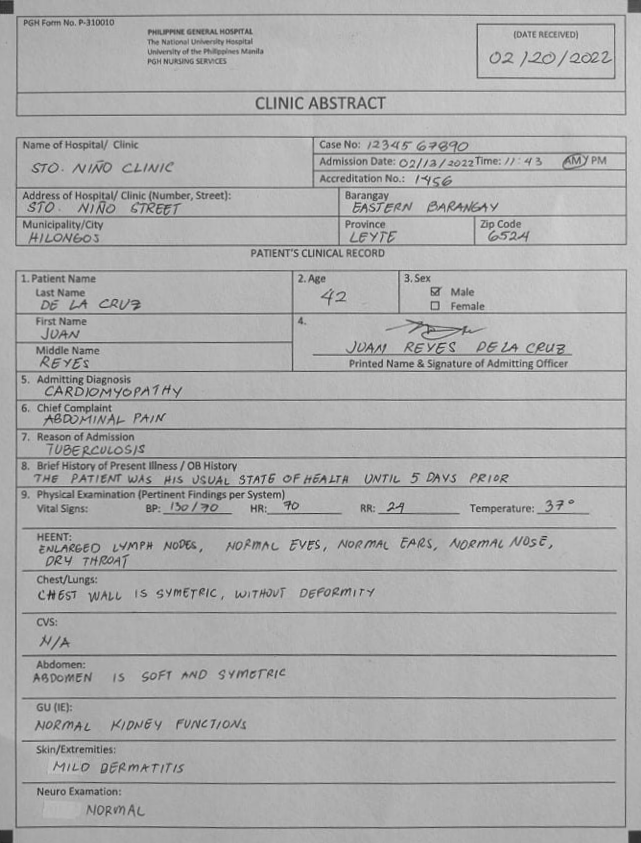 PGH Form No. P-310010
PHILIPPINE GENERAL HOSPITAL
The National University Hospital
University of the Philippines Manila
PGH NURSING SERVICES
(DATE RECEIVED)
02/20/2022
CLINIC ABSTRACT
Name of Hospital/ Clinic
STO. NIÑO CLINIC
Case No: 1234567890
Admission Date: 02/13/2022 Time: 11:43 AM/PM
Accreditation No.: 1456
Address of Hospital/ Clinic (Number, Street):
STO. NIÑO STREET
Barangay
EASTERN BARANGAY
Municipality/City
HILONGOS
Province
LEYTE
Zip Code
6524
PATIENT'S CLINICAL RECORD
1. Patient Name
Last Name
DE LA CRUZ
2. Age
42
3. Sex
Male
Female
First Name
JUAN
Middle Name
REYES
4.
JUAN REYES DE LA CRUZ
Printed Name & Signature of Admitting Officer
5. Admitting Diagnosis
CARDIOMYOPATHY
6. Chief Complaint
ABDOMINAL PAIN
7. Reason of Admission
TUBERCULOSIS
8. Brief History of Present Illness / OB History
THE PATIENT WAS HIS USUAL STATE OF HEALTH UNTIL 5 DAYS PRIOR
9. Physical Examination (Pertinent Findings per System)
Vital Signs: BP: 130/90 HR: 90 RR: 29 Temperature: 37°
HEENT:
ENLARGED LYMPH NODES, NORMAL EYES, NORMAL EARS, NORMAL NOSE,
DRY THROAT
Chest/Lungs:
CHEST WALL IS SYMETRIC, WITHOUT DEFORMITY
CVS:
N/A
Abdomen:
ABDOMEN IS SOFT AND SYMETRIC
GU (IE):
NORMAL KIDNEY FUNCTIONS
Skin/Extremities:
MILD DERMATITIS
Neuro Examation:
NORMAL